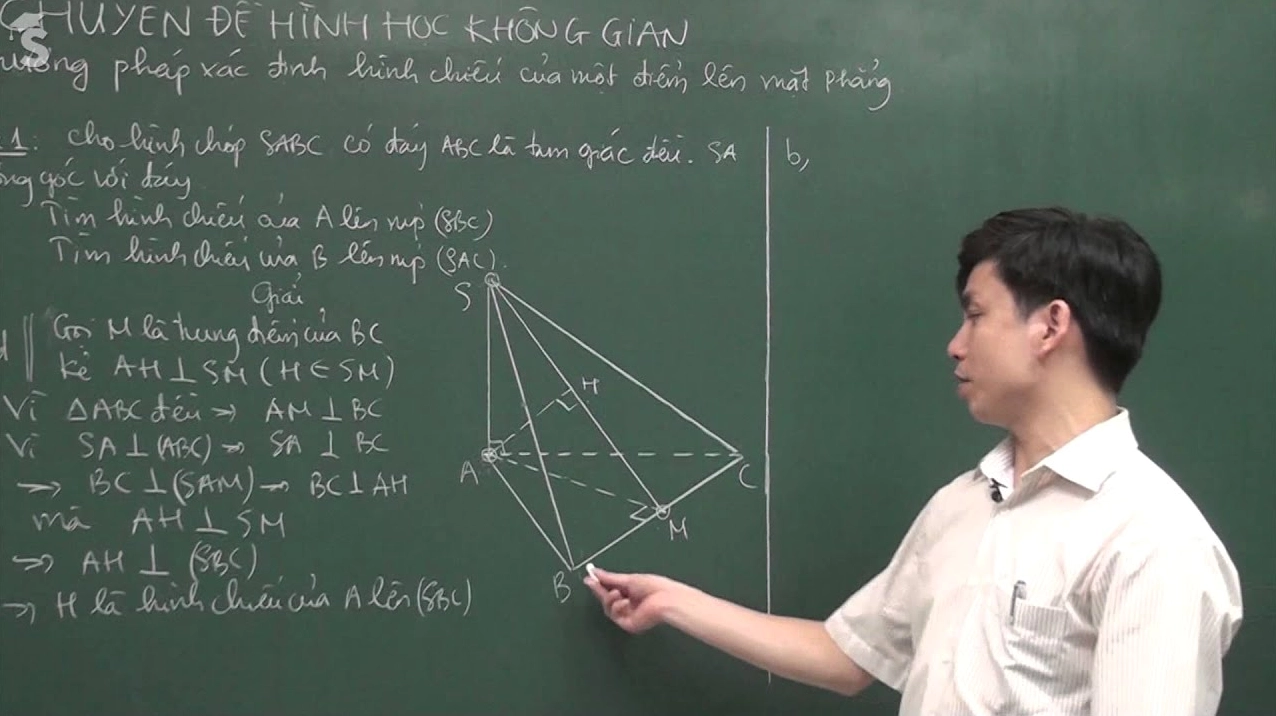 CHUYÊN ĐỀ HÌNH HỌC KHÔNG GIAN
pháp xác định hình chiếu của một điểm lên mặt phẳng
1: cho hình chóp SABC có đáy ABC là tam giác đều. SA
góc với đáy
Tìm hình chiếu của A lên mp (SBC)
Tìm hình chiếu của B lên mp (SAC).
Giải
Gọi M là trung điểm của BC
kẻ AH ⊥ SM (H ∈ SM)
Vì ΔABC đều → AM ⊥ BC
Vì SA ⊥ (ABC) → SA ⊥ BC
→ BC ⊥ (SAM) → BC ⊥ AH
mà AH ⊥ SM
→ AH ⊥ (SBC)
→ H là hình chiếu của A lên (SBC)
b,
S
H
A
C
M
B
S